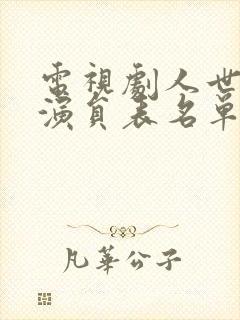 電視劇人世
演員表名單
凡華公子